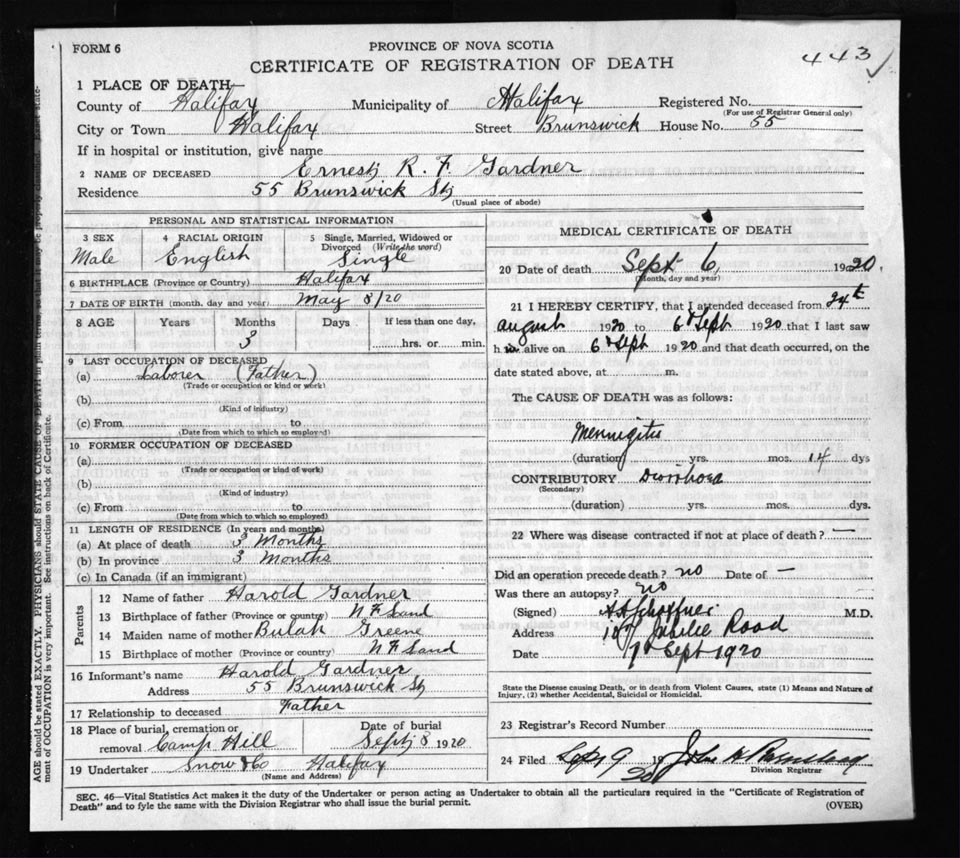 FORM 6
PROVINCE OF NOVA SCOTIA
CERTIFICATE OF REGISTRATION OF DEATH
443 ✓
1 PLACE OF DEATH
County of Halifax Municipality of Halifax Registered No.
(For use of Registrar General only)
City or Town Halifax Street Brunswick House No. 55
If in hospital or institution, give name
2 NAME OF DECEASED Ernest R. F. Gardner
Residence 55 Brunswick St
(Usual place of abode)
PERSONAL AND STATISTICAL INFORMATION
3 SEX 4 RACIAL ORIGIN 5 Single, Married, Widowed or Divorced (Write the word)
Male English Single
6 BIRTHPLACE (Province or Country) Halifax
7 DATE OF BIRTH (month, day and year) May 8/20
8 AGE Years Months Days If less than one day,
3 hrs. or min.
9 LAST OCCUPATION OF DECEASED
(a) Laborer (Father)
(Trade or occupation or kind or work)
(b)
(Kind of industry)
(c) From to
(Date from which to which so employed)
10 FORMER OCCUPATION OF DECEASED
(a)
(Trade or occupation or kind of work)
(b)
(Kind of industry)
(c) From to
(Date from which to which so employed)
11 LENGTH OF RESIDENCE (In years and months)
(a) At place of death 3 Months
(b) In province 3 Months
(c) In Canada (if an immigrant)
Parents
12 Name of father Harold Gardner
13 Birthplace of father (Province or country) NF Land
14 Maiden name of mother Bulah Greene
15 Birthplace of mother (Province or country) NF Land
16 Informant's name Harold Gardner
Address 55 Brunswick St
17 Relationship to deceased Father
18 Place of burial, cremation or removal Camp Hill Date of burial Sept 8 1920
19 Undertaker Snow & Co Halifax
(Name and Address)
MEDICAL CERTIFICATE OF DEATH
20 Date of death Sept 6, 1920.
(Month, day and year)
21 I HEREBY CERTIFY, that I attended deceased from 24th
August 1920 to 6th Sept 1920 that I last saw
h im alive on 6th Sept 1920 and that death occurred, on the
date stated above, at m.
The CAUSE OF DEATH was as follows:
Meningitis
(duration) yrs. mos. 14 dys
CONTRIBUTORY Diarrhoea
(Secondary)
(duration) yrs. mos. dys.
22 Where was disease contracted if not at place of death? —
Did an operation precede death? no Date of —
Was there an autopsy? no
(Signed) M.D.
Address Jubilee Road
Date 7th Sept 1920
State the Disease causing Death, or in death from Violent Causes, state (1) Means and Nature of
Injury, (2) whether Accidental, Suicidal or Homicidal.
23 Registrar's Record Number
24 Filed Sept 9 1920 John W
Division Registrar
SEC. 46—Vital Statistics Act makes it the duty of the Undertaker or person acting as Undertaker to obtain all the particulars required in the "Certificate of Registration of
Death" and to fyle the same with the Division Registrar who shall issue the burial permit. (OVER)
AGE should be stated EXACTLY. PHYSICIANS should STATE CAUSE OF DEATH in plain
ment of OCCUPATION is very important. See instructions on back of Certificate.